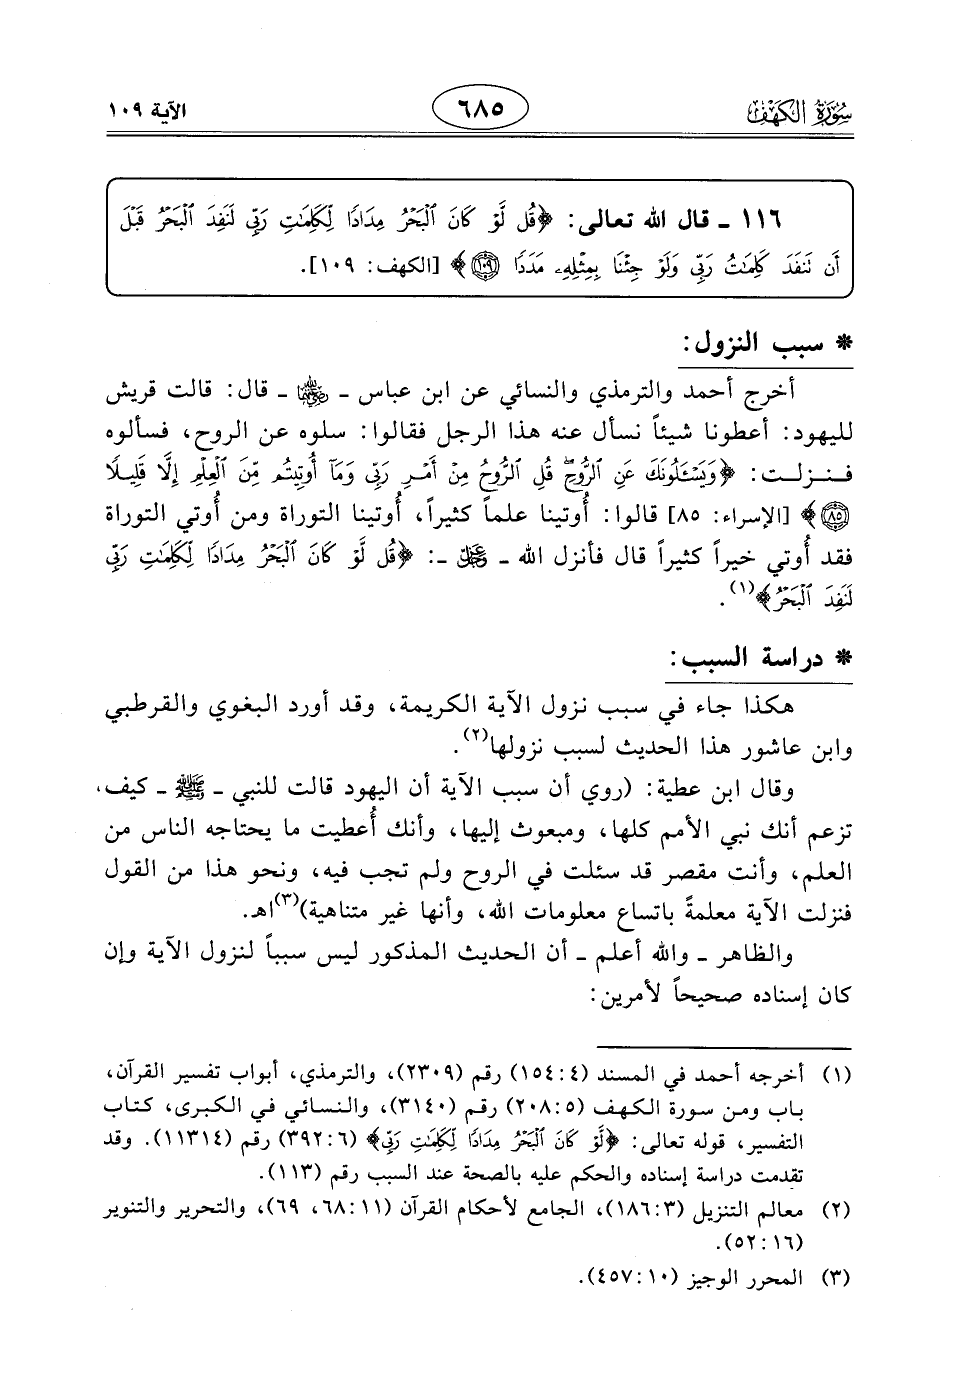 سورة الكهف ٦٨٥ الآية ١٠٩
١١٦ ـ قال الله تعالى: ﴿قُل لَّوۡ كَانَ ٱلۡبَحۡرُ مِدَادٗا لِّكَلِمَٰتِ رَبِّي لَنَفِدَ ٱلۡبَحۡرُ قَبۡلَ
أَن تَنفَدَ كَلِمَٰتُ رَبِّي وَلَوۡ جِئۡنَا بِمِثۡلِهِۦ مَدَدٗا ١٠٩﴾ [الكهف: ١٠٩].
* سبب النزول:
أخرج أحمد والترمذي والنسائي عن ابن عباس ـ رضي الله عنهما ـ قال: قالت قريش
لليهود: أعطونا شيئاً نسأل عنه هذا الرجل فقالوا: سلوه عن الروح، فسألوه
فنزلت: ﴿وَيَسۡـَٔلُونَكَ عَنِ ٱلرُّوحِۖ قُلِ ٱلرُّوحُ مِنۡ أَمۡرِ رَبِّي وَمَآ أُوتِيتُم مِّنَ ٱلۡعِلۡمِ إِلَّا قَلِيلٗا
٨٥﴾ [الإسراء: ٨٥] قالوا: أُوتينا علماً كثيراً، أُوتينا التوراة ومن أُوتي التوراة
فقد أُوتي خيراً كثيراً قال فأنزل الله ـ عز وجل ـ: ﴿قُل لَّوۡ كَانَ ٱلۡبَحۡرُ مِدَادٗا لِّكَلِمَٰتِ رَبِّي
لَنَفِدَ ٱلۡبَحۡرُ﴾(١).
* دراسة السبب:
هكذا جاء في سبب نزول الآية الكريمة، وقد أورد البغوي والقرطبي
وابن عاشور هذا الحديث لسبب نزولها(٢).
وقال ابن عطية: (روي أن سبب الآية أن اليهود قالت للنبي ـ ﷺ ـ كيف،
تزعم أنك نبي الأمم كلها، ومبعوث إليها، وأنك أُعطيت ما يحتاجه الناس من
العلم، وأنت مقصر قد سئلت في الروح ولم تجب فيه، ونحو هذا من القول
فنزلت الآية معلمةً باتساع معلومات الله، وأنها غير متناهية)(٣)اهـ.
والظاهر ـ والله أعلم ـ أن الحديث المذكور ليس سبباً لنزول الآية وإن
كان إسناده صحيحاً لأمرين:
(١) أخرجه أحمد في المسند (٤: ١٥٤) رقم (٢٣٠٩)، والترمذي، أبواب تفسير القرآن،
باب ومن سورة الكهف (٥: ٢٠٨) رقم (٣١٤٠)، والنسائي في الكبرى، كتاب
التفسير، قوله تعالى: ﴿لَّوۡ كَانَ ٱلۡبَحۡرُ مِدَادٗا لِّكَلِمَٰتِ رَبِّي﴾ (٦: ٣٩٢) رقم (١١٣١٤). وقد
تقدمت دراسة إسناده والحكم عليه بالصحة عند السبب رقم (١١٣).
(٢) معالم التنزيل (٣: ١٨٦)، الجامع لأحكام القرآن (١١: ٦٨، ٦٩)، والتحرير والتنوير
(١٦: ٥٢).
(٣) المحرر الوجيز (١٠: ٤٥٧).